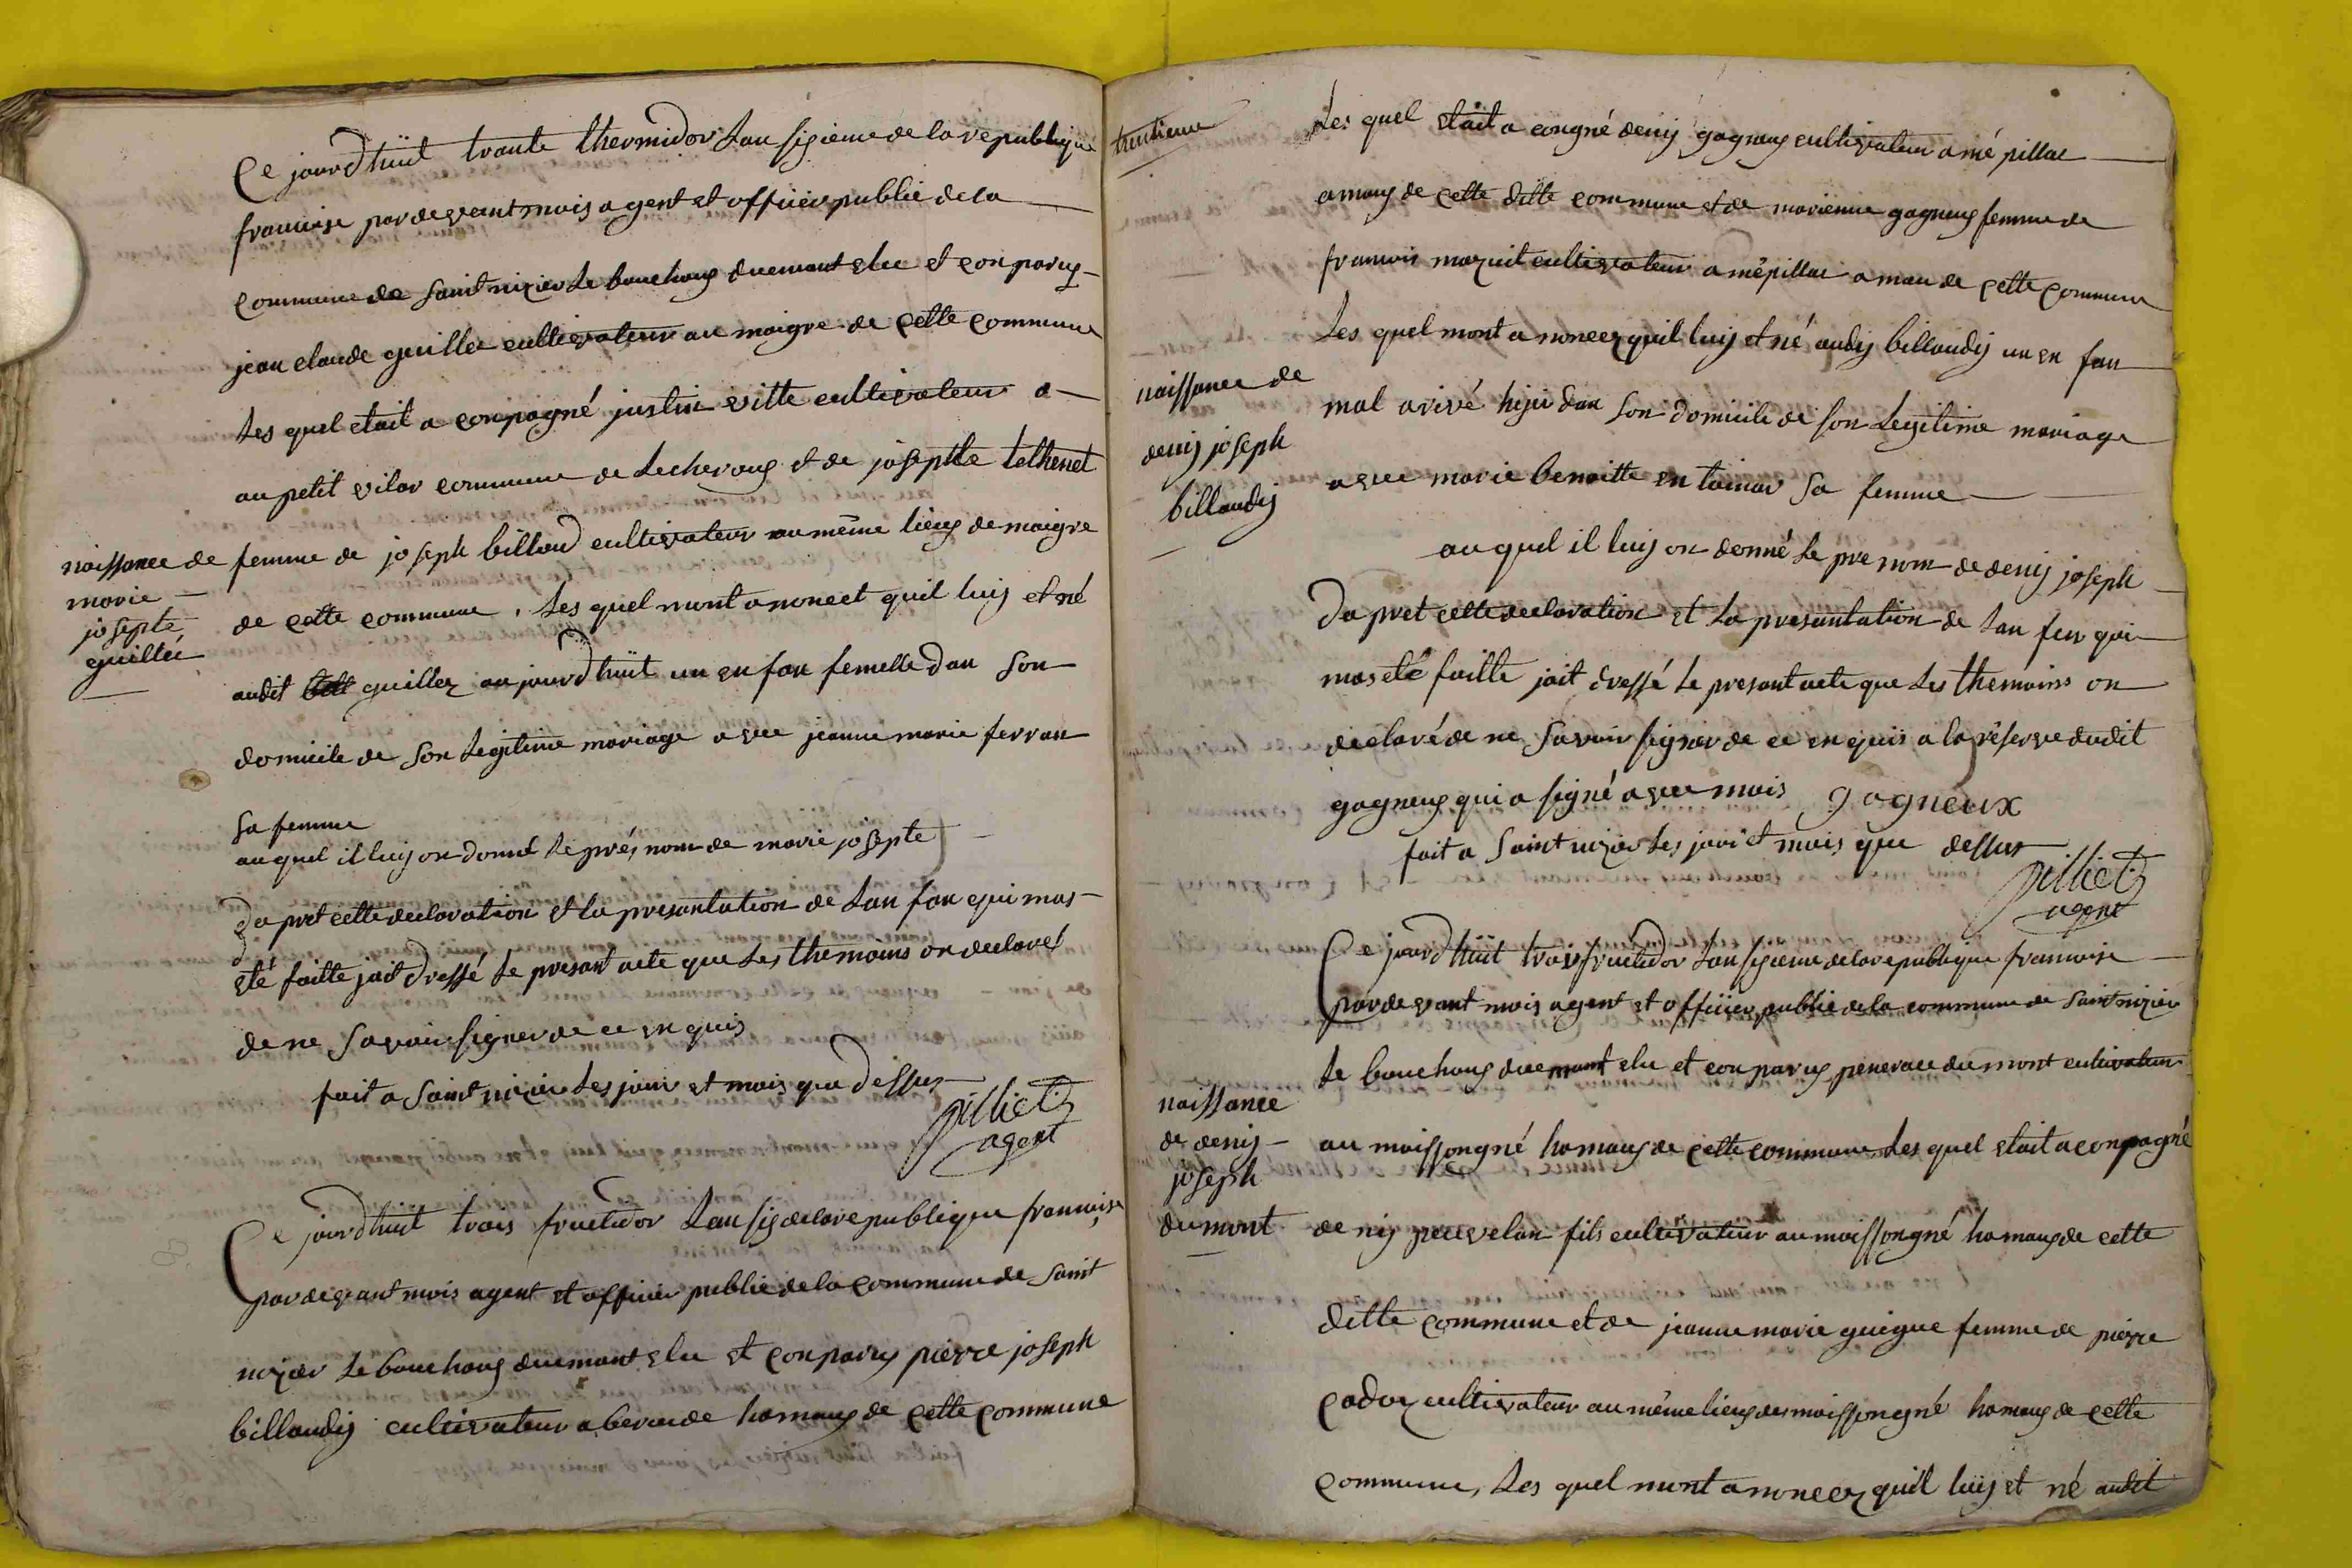 Ce jourdhuit trante thermidor Lan sisieme de la republique
francoise par devant mois agent et officier public de la
commune de saint nizier le bouchoux duemant elu et conparus
jean claude guiller cultivateur au maigre de cette commune
Les quel etait a conpagné justin vitte cultivateur a
au petit vilar commune de Lecheroux et de josephte tethenet
naissance de
marie
josepte
guillié
femme de joseph billoud cultivateur au même lieux de maigre
de cette commune, Les quel mont anoncet quil luis et né
audit guillez aujourdhuit un enfan femelle dan son
domicile de son Legitime mariage avec jeanne marie ferran
sa femme
auquel il luis on donné le prénom de marie josepte
dapret cette declaration et la presantation de Lan fan qui mas
eté faitte jait dressé le presant acte que Les themoins on declaré
de ne savoir signer de ce en quis
fait a saint nizier Les jour et mois que dessus
pilliet
agent
Ce jourdhuit trois fructidor Lan sis de la republique francoise
par devant mois agent et officier public de la commune de saint
nizier Le bouchoux duemant elu et conparus pierre joseph
billaudis cultivateur a beronde hamaux de cette commune
trentieme
Les quel etait a congné denis gagneux cultivateur a mé pillac
amaux de cette ditte commune et de marienne gagneux femme de
francois mazuit cultivateur a mépillac a mau de cette commune
Les quel mont a noncez quil luis et né audis billaudis un en fan
naissance de
denis joseph
billaudis
mal arivé hijer dan son domicile de son Legitime mariage
avec marie benoitte sa femme
auquel il luis on donné le pre nom de denis joseph
Dapret cette declaration et La presantation de Lan fen qui
mas eté faitte jait dressé le presant acte que Les themoins on
declaré de ne savoir signer de ce en quis a la réserve dudit
gagneux qui a signé avec mois gagneux
fait a saint nizier Les jour et mois que dessus
pilliet
agent
Ce jourdhuit trois fructidor Lan sisieme de la republique francoise
par devant mois agent et officier public de la commune de saint nizier
le bouchoux duemant elu et conparus dumont cultivateur
naissance
de denis
joseph
dumont
au moissongné hamaux de cette commune Les quel etait a conpagné
denis pecuvelan fils cultivateur au moissongné hamaux de cette
ditte commune et de jeanne marie guigue femme de pierre
cadoz cultivateur au même lieux de moissongné hamaux de cette
commune, Les quel mont anoncez quil luis et né audit